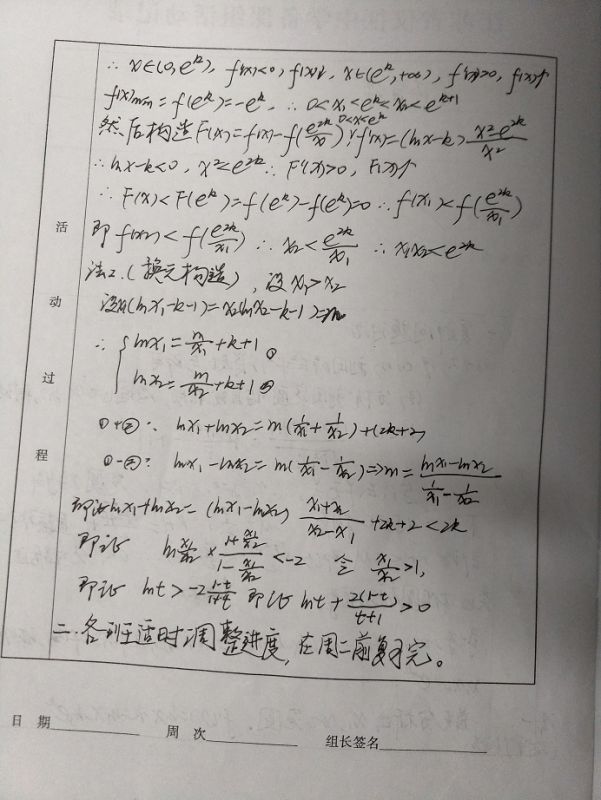 ∴ x∈(0,e^k), f'(x)<0, f(x)↓, x∈(e^k,+∞), f'(x)>0, f(x)↑
f(x)min=f(e^k)=-e^k, ∴ 0<x₁<e^k<x₂<e^{k+1}
然后构造F(x)=f(x)-f(e^{2k}/x), 0<x<e^k, F'(x)=(lnx-k)(x²-e^{2k})/x²
∵ lnx-k<0, x²<e^{2k} ∴ F'(x)>0, F(x)↑
∴ F(x)<F(e^k)=f(e^k)-f(e^k)=0 ∴ f(x₁)<f(e^{2k}/x₁)
即 f(x₂)<f(e^{2k}/x₁) ∴ x₂<e^{2k}/x₁ ∴ x₁x₂<e^{2k}
法2.(换元构造), 设x₁>x₂
设x₁(lnx₁-k-1)=x₂(lnx₂-k-1)=m
∴ { lnx₁=m/x₁+k+1 ①
lnx₂=m/x₂+k+1 ②
①+②: lnx₁+lnx₂=m(1/x₁+1/x₂)+(2k+2)
①-②: lnx₁-lnx₂=m(1/x₁-1/x₂)⇒m=(lnx₁-lnx₂)/(1/x₁-1/x₂)
即证lnx₁+lnx₂=(lnx₁-lnx₂)(x₁+x₂)/(x₂-x₁)+2k+2<2k
即证 ln x₁/x₂×(1+x₁/x₂)/(1-x₁/x₂)<-2 令 x₁/x₂>1,
即证 lnt>-2(1-t)/(1+t) 即证 lnt+2(1-t)/(t+1)>0
二:各班适时调整进度,在周二前复习完。
活
动
过
程
日 期 周 次 组长签名